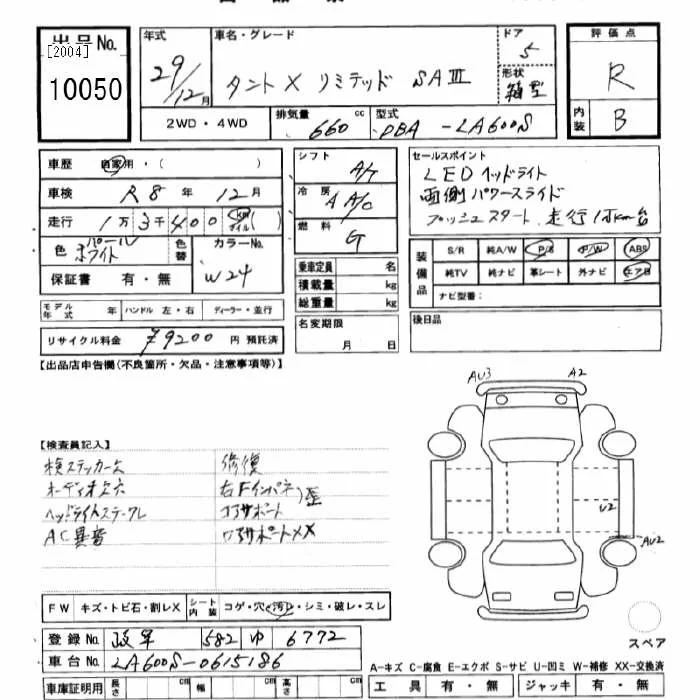 出品No.
[2004]
10050
年式
29/12月
車名・グレード
タント X リミテッド SAⅢ
ドア
5
形状
箱型
評価点
R
内装
B
2WD・4WD
排気量
660
cc
型式
DBA-LA600S
車歴
自家用・( )
車検
R8年12月
走行
1万3千400
km
マイル
( )
色
パール
ホワイト
色替
カラーNo.
W24
保証書 有・無
シフト
A/T
冷房
AA/C
燃料
G
セールスポイント
LED ヘッドライト
両側パワースライド
プッシュスタート 走行1万km台
装備品
S/R
純A/W
P/S
P/W
ABS
純TV
純ナビ
革シート
外ナビ
エアB
ナビ型番:
乗車定員 名
積載量 kg
総重量 kg
モデル年式 年
ハンドル 左・右
ディーラー・並行
リサイクル料金 ¥9200 円 預託済
名変期限
月 日
後日品
【出品店申告欄(不良箇所・欠品・注意事項等)】
AU3
A2
U2
AU2
【検査員記入】
検ステッカー欠
修復
オーディオ欠穴
右Fインパネ歪
ヘッドライトステークレ
コアサポート
AC異音
コアサポートXX
FW
キズ・トビ石・割レX
シート内装
コゲ・穴・汚レ・シミ・破レ・スレ
登録No.
582 ゆ 6772
車台No.
LA600S-0615186
車庫証明用
長さ
cm
幅
cm
高さ
cm
スペア
A-キズ C-腐食 E-エクボ S-サビ U-凹ミ W-補修 XX-交換済
工具 有・無
ジャッキ 有・無